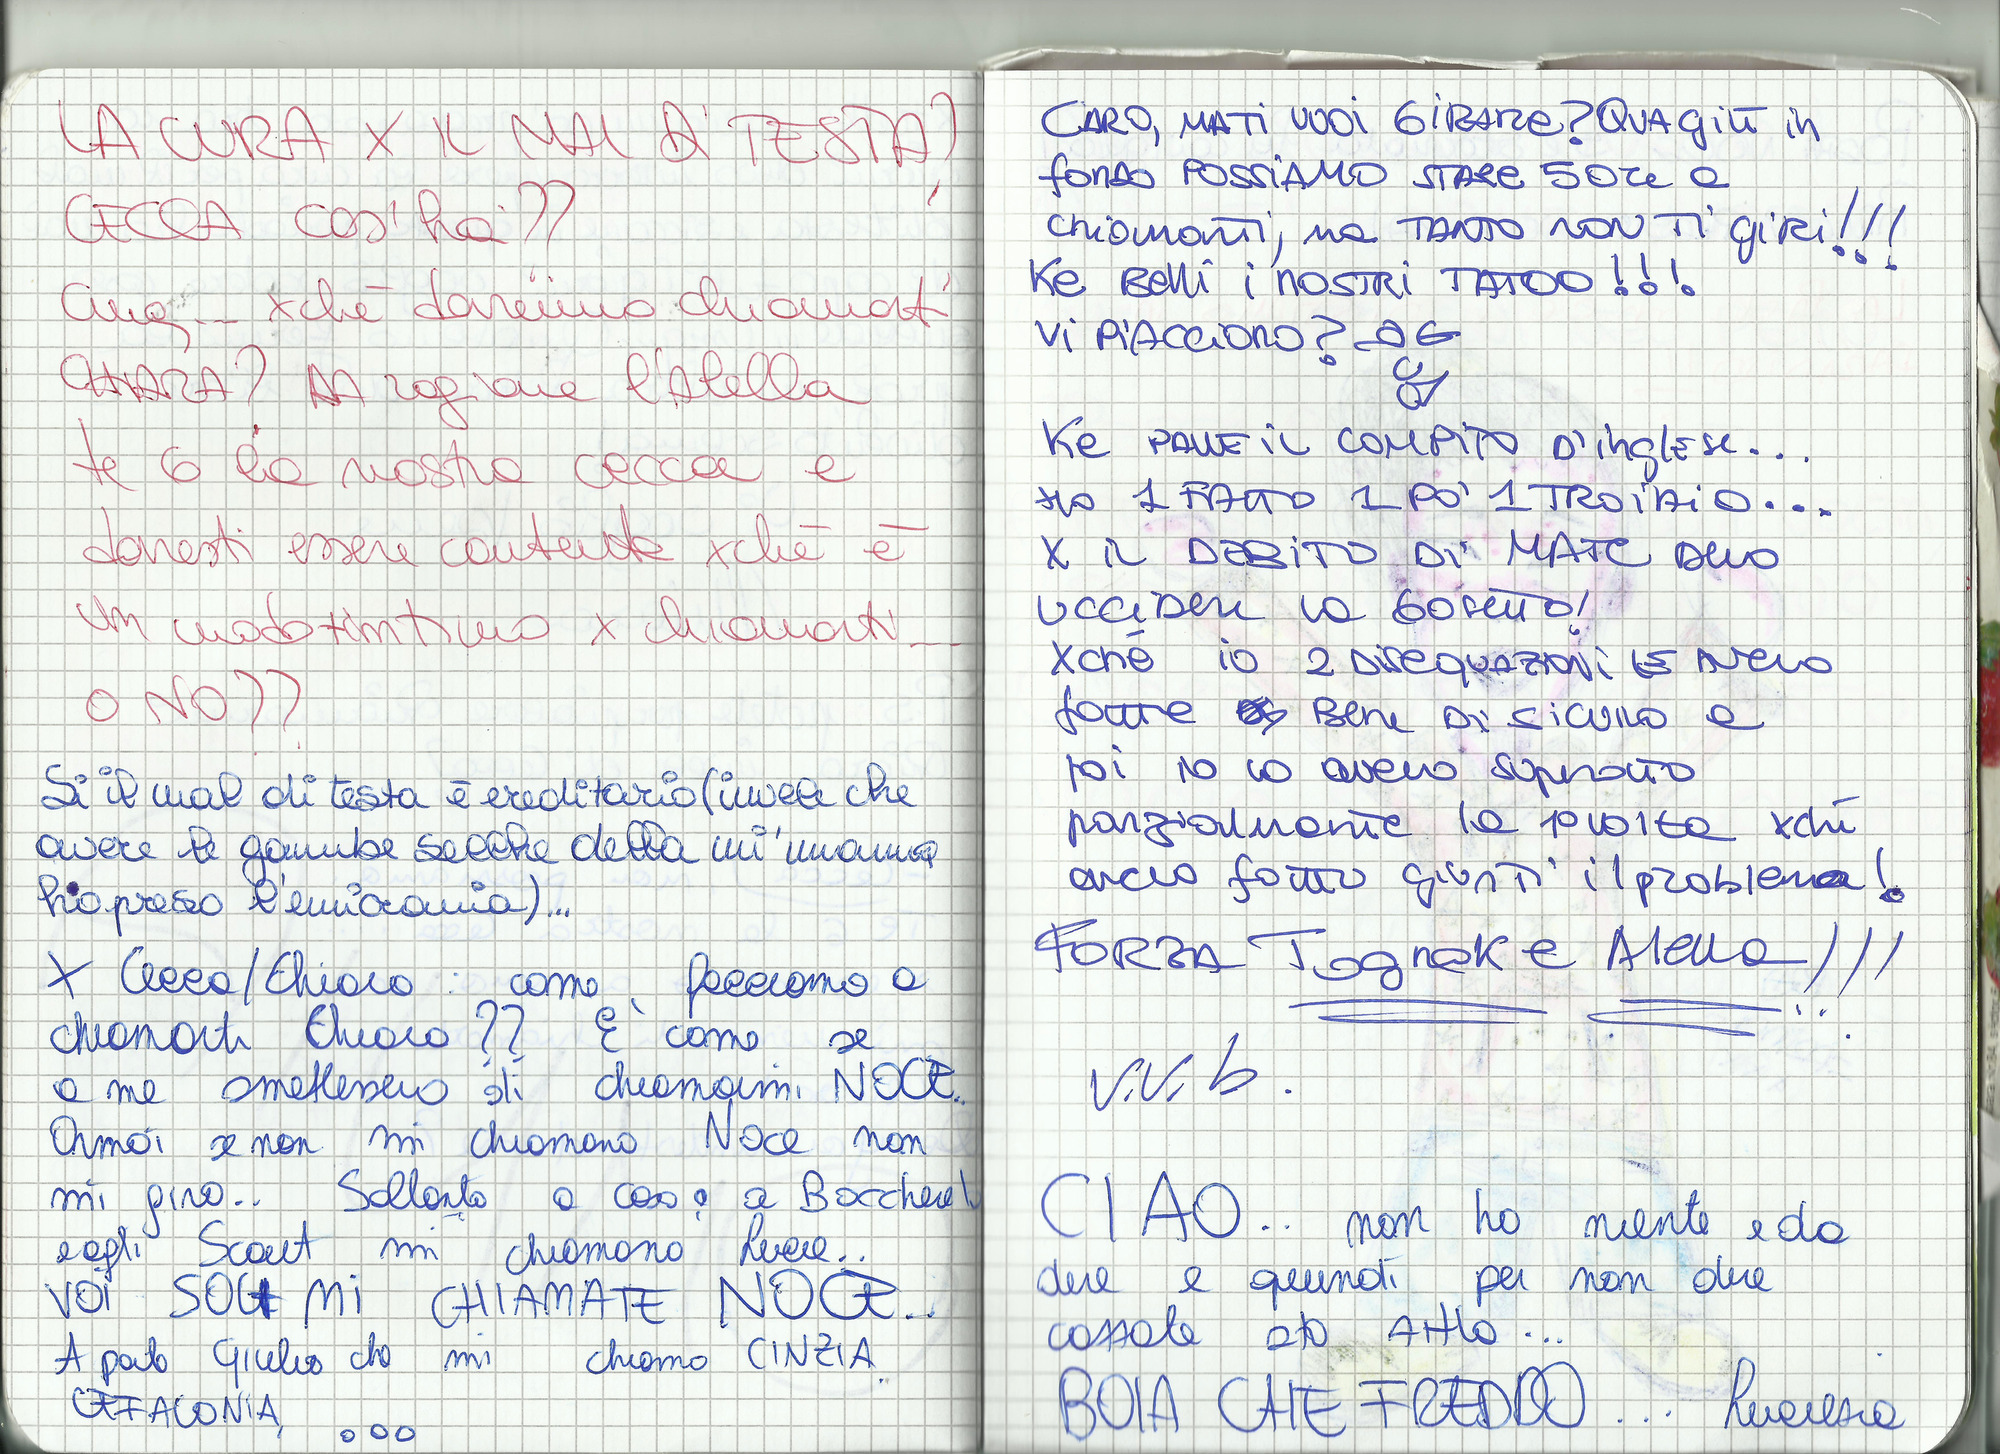 LA CURA X IL MAL DI TESTA?
CECCA cos'hai??
Cinq... xchè dovremmo chiamarti
CHIARA? HA ragione l'Atella
te 6 la nostra cecca e
dovresti essere contenta xchè è
un modo + intimo x chiamarti...
o NO??
Sì il mal di testa è ereditario (invece che
avere le gambe secche della mi' mamma
ho preso l'emicrania)...
X Cecca/Chiara: come facciamo a
chiamarti Chiara?? È come se
a me smettessero di chiamarmi NOCE..
Ormai se non mi chiamano Noce non
mi giro.. Soltanto a casa, a Boccherel
e agli Scout mi chiamano Lucre..
VOI SOLI MI CHIAMATE NOCE...
A parte Giulio che mi chiama CINZIA
CEFALONIA, ...
CARO, MA TI VUOI GIRARE? QUAGGIÙ in
fondo POSSIAMO STARE 5 ORE a
chiamarti, ma TANTO NON TI GIRI!!!
Ke Belli i NOSTRI TATOO!!!
Vi PIACCIONO?
Ke PALLE IL COMPITO D'inglese...
Ho FATTO 1 PO' 1 TROIAIO...
X IL DEBITO DI MATE devo
uccidere la
Xché io 2 DISEQUAZIONI LE AVEVO
fatte Bene DI SICURO e
poi io lo avevo superato
parzialmente la 1ª volta xché
avevo fatto giusti il problema!
FORZA Tognak e Atella!!!
V.V.B.
CIAO.. non ho niente da
dire e quindi per non dire
cazzate sto ATTLA...
BOIA CHE FREDDO... Lucrezia